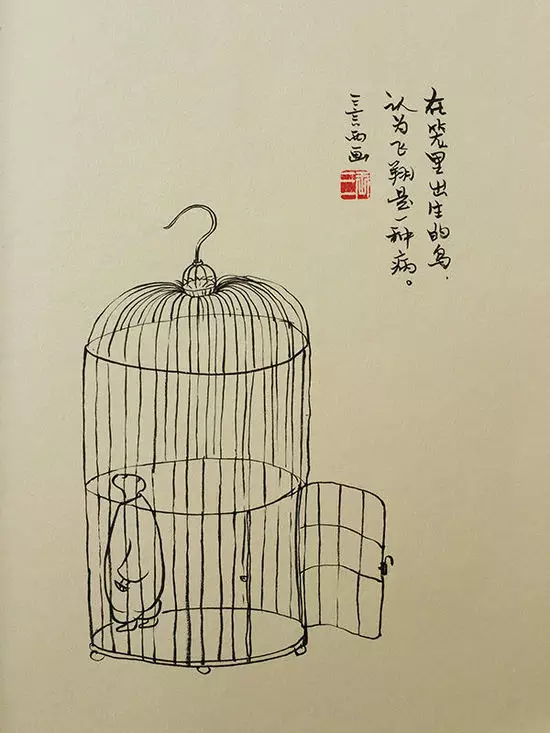 在笼里出生的鸟，
认为飞翔是一种病。
画